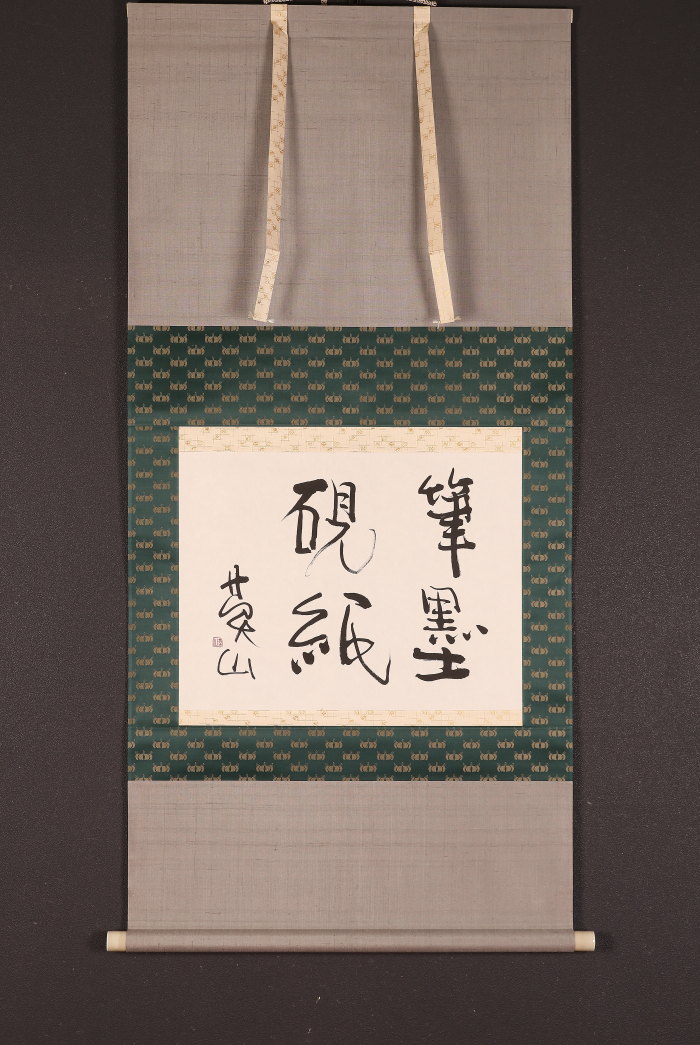 筆墨
硯紙
英山